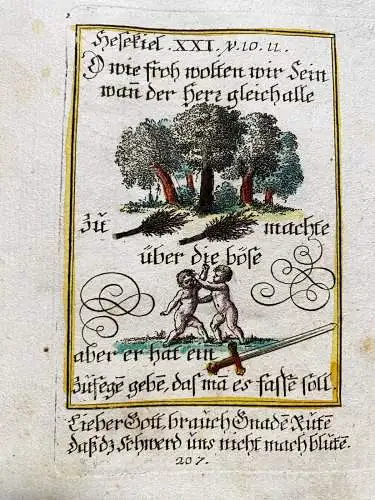 Hesekiel. XXI. v. 10. 11.
O wie froh wolten wir sein
wañ der Herr gleich alle
zũ machte
über die böse
aber er hat ein
zũfegē gebē, das mā es fassē soll.
Lieber Gott, braüch Gnadē Rütē
daß dz Schwerd üns nicht mach blütē.
207.